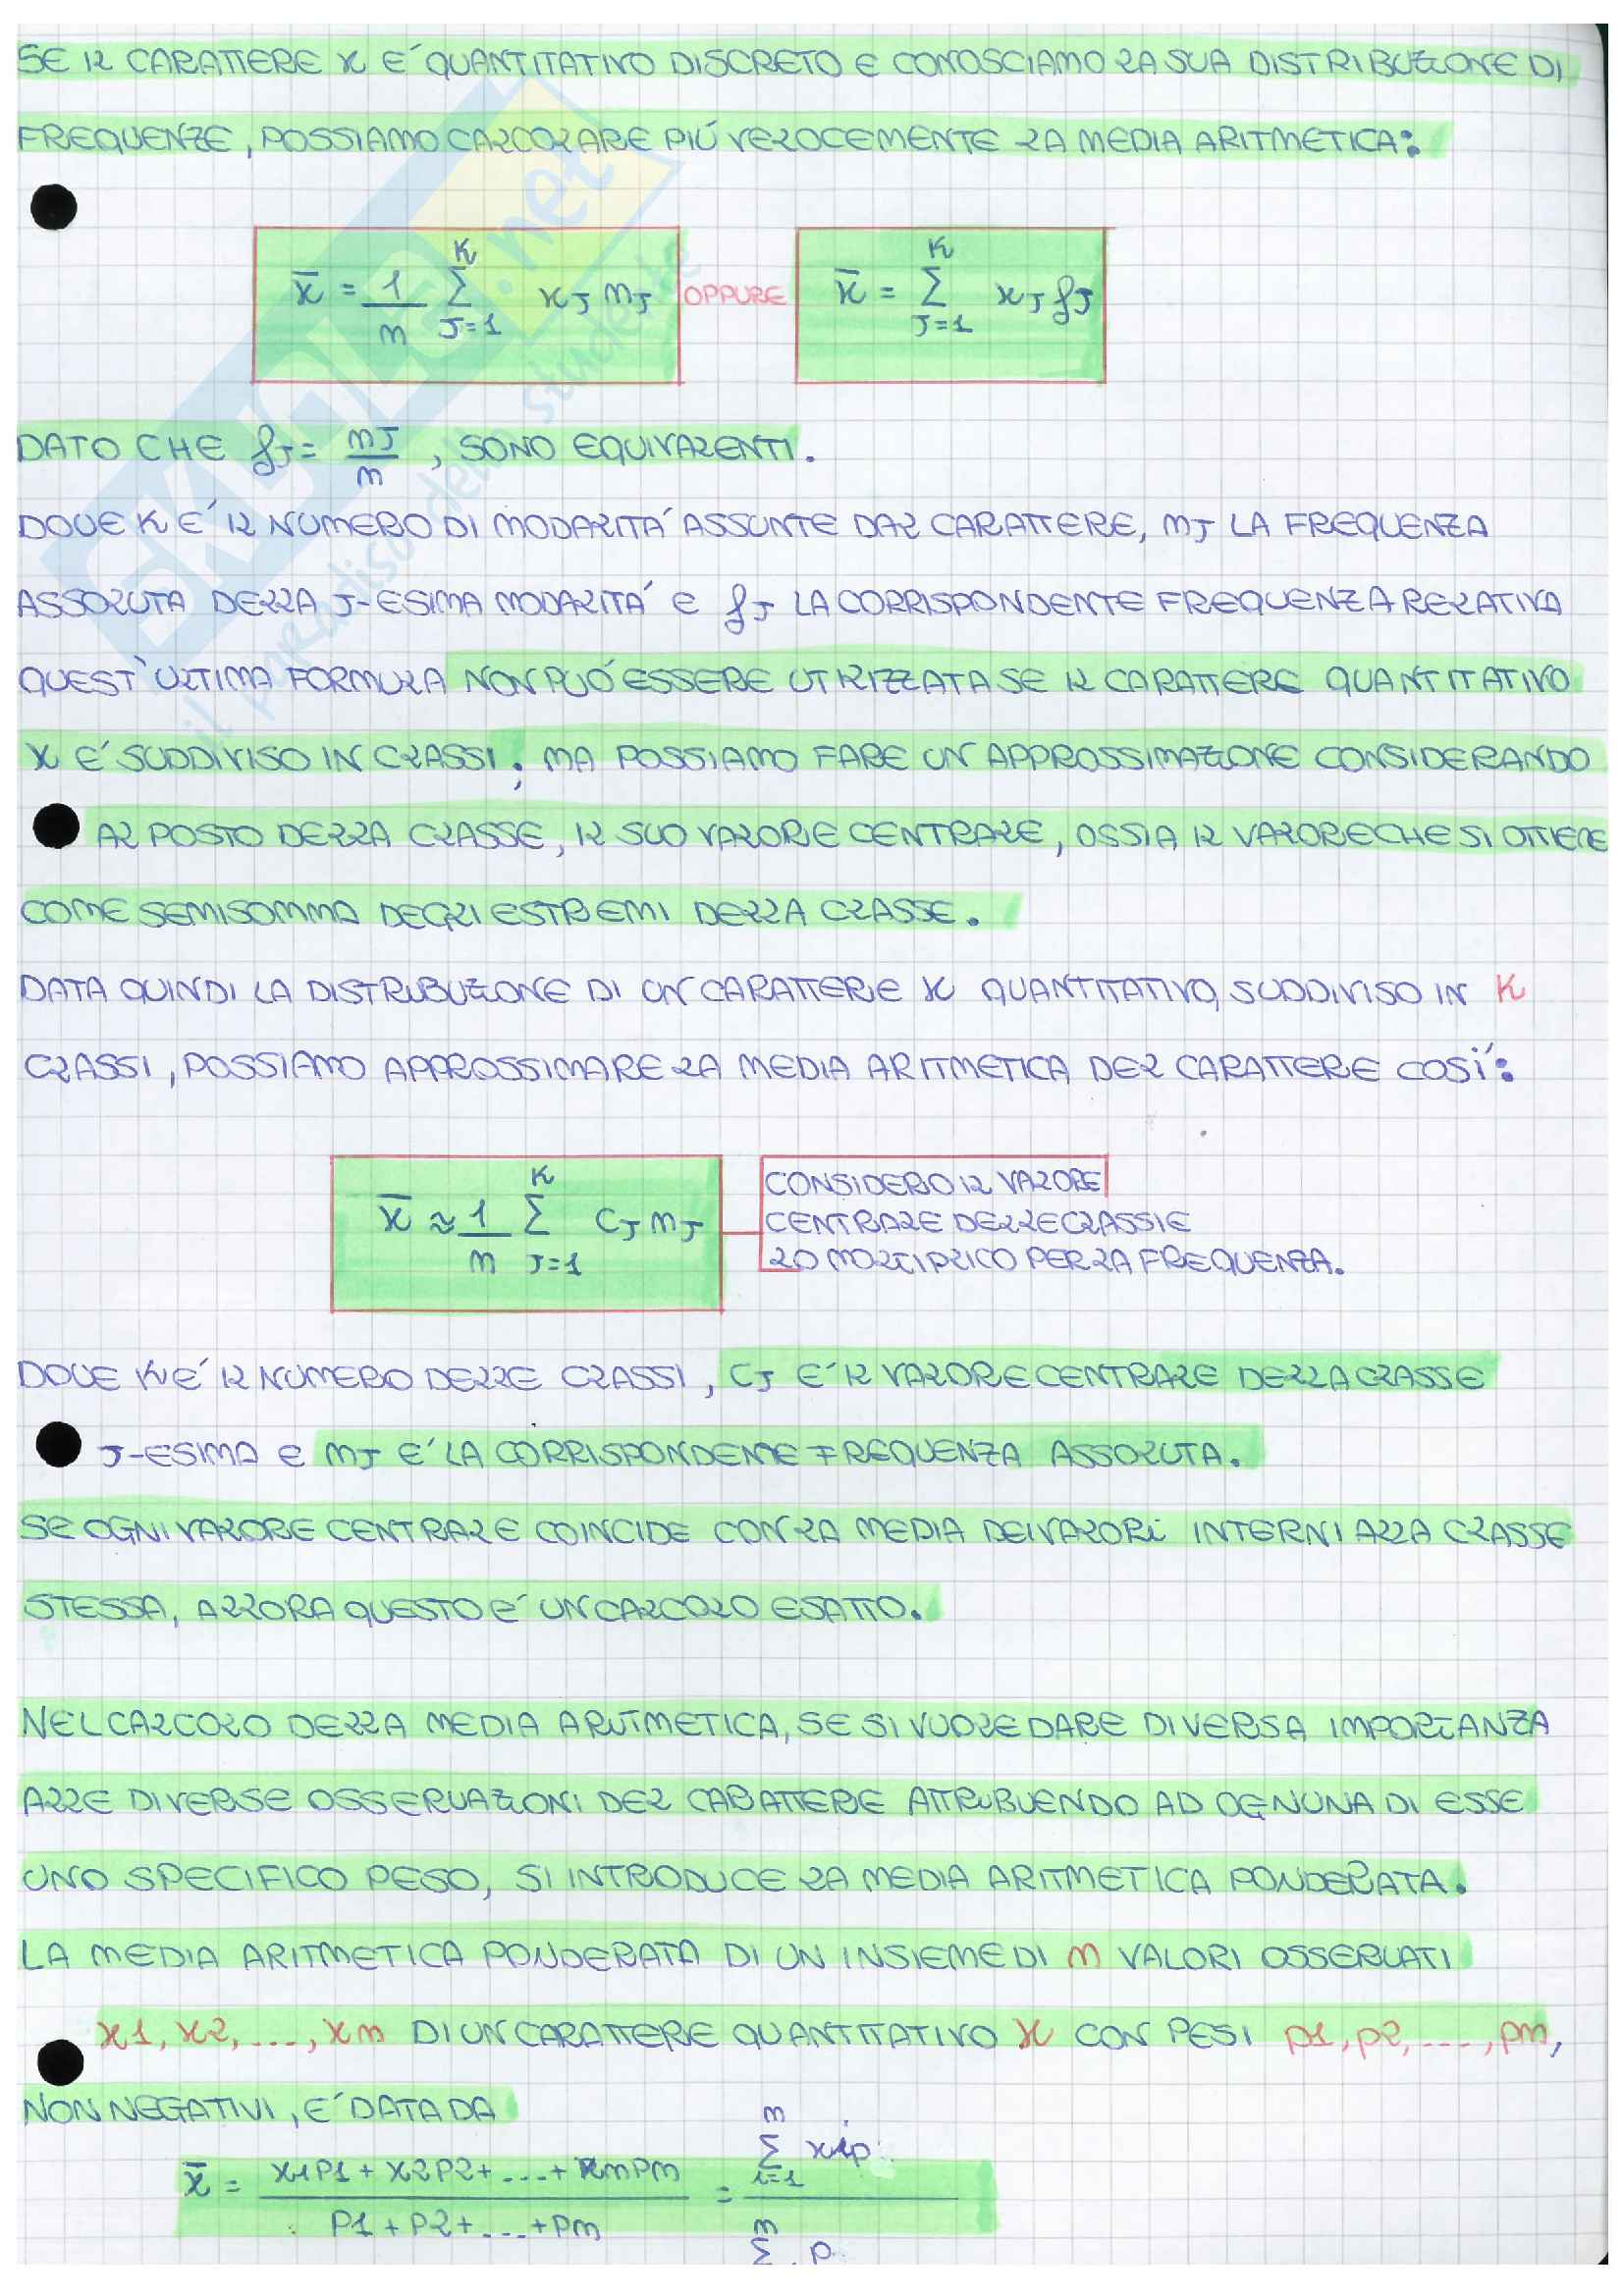 SE IL CARATTERE X E' QUANTITATIVO DISCRETO E CONOSCIAMO LA SUA DISTRIBUZIONE DI
FREQUENZE, POSSIAMO CALCOLARE PIÚ VELOCEMENTE LA MEDIA ARITMETICA:
x̄ = 1/n Σ_{J=1}^{K} x_J n_J OPPURE x̄ = Σ_{J=1}^{K} x_J f_J
DATO CHE f_J = n_J/n, SONO EQUIVALENTI.
DOVE K E' IL NUMERO DI MODALITA' ASSUNTE DAL CARATTERE, n_J LA FREQUENZA
ASSOLUTA DELLA J-ESIMA MODALITA' E f_J LA CORRISPONDENTE FREQUENZA RELATIVA
QUEST'ULTIMA FORMULA NON PUÓ ESSERE UTILIZZATA SE IL CARATTERE QUANTITATIVO
X E' SUDDIVISO IN CLASSI; MA POSSIAMO FARE UN APPROSSIMAZIONE CONSIDERANDO
AL POSTO DELLA CLASSE, IL SUO VALORE CENTRALE, OSSIA IL VALORE CHE SI OTTIENE
COME SEMISOMMA DEGLI ESTREMI DELLA CLASSE.
DATA QUINDI LA DISTRIBUZIONE DI UN CARATTERE X QUANTITATIVO, SUDDIVISO IN K
CLASSI, POSSIAMO APPROSSIMARE LA MEDIA ARITMETICA DEL CARATTERE COSÍ:
x̄ ≈ 1/n Σ_{J=1}^{K} C_J n_J
CONSIDERO IL VALORE
CENTRALE DELLE CLASSI E
LO MOLTIPLICO PER LA FREQUENZA.
DOVE K E' IL NUMERO DELLE CLASSI, C_J E' IL VALORE CENTRALE DELLA CLASSE
J-ESIMA E n_J E' LA CORRISPONDENTE FREQUENZA ASSOLUTA.
SE OGNI VALORE CENTRALE COINCIDE CON LA MEDIA DEI VALORI INTERNI ALLA CLASSE
STESSA, ALLORA QUESTO E' UN CALCOLO ESATTO.
NEL CALCOLO DELLA MEDIA ARITMETICA, SE SI VUOLE DARE DIVERSA IMPORTANZA
ALLE DIVERSE OSSERVAZIONI DEL CARATTERE ATTRIBUENDO AD OGNUNA DI ESSE
UNO SPECIFICO PESO, SI INTRODUCE LA MEDIA ARITMETICA PONDERATA.
LA MEDIA ARITMETICA PONDERATA DI UN INSIEME DI n VALORI OSSERVATI
x1, x2, ..., xn DI UN CARATTERE QUANTITATIVO X CON PESI p1, p2, ..., pn,
NON NEGATIVI, E' DATA DA
x̄ = x1P1 + x2P2 + ... + xnPn / P1 + P2 + ... + Pn = Σ_{i=1}^{n} xip / Σ^{n} p
SKUOLA.net
il paradiso dello studente